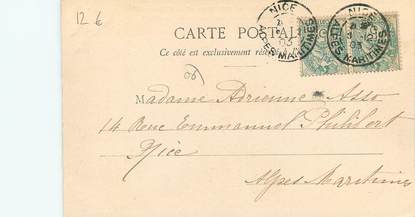 12 €
CARTE POSTALE
Ce côté est exclusivement réservé
NICE
03
ALPES-MARITIMES
NICE
03
ALPES MARITIMES
06
Madame Adrienne Asso
14 Rue Emmanuel Philibert
Nice
Alpes Maritimes